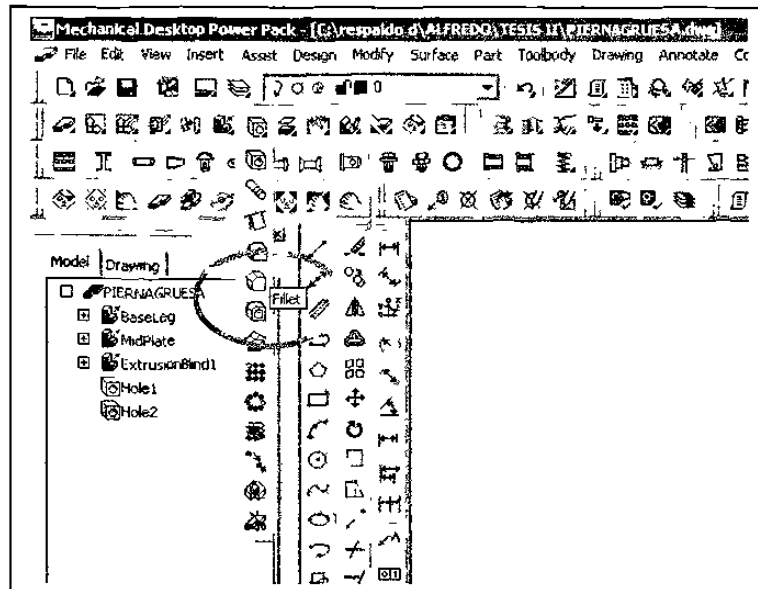 Mechanical Desktop Power Pack - [C:\respaldo d\ALFREDO\TESIS II\PIERNAGRUESA.dwg]
File Edit View Insert Assist Design Modify Surface Part Toolbody Drawing Annotate Co
0
Model Drawing
PIERNAGRUESA
Fillet
BaseLeg
MidPlate
ExtrusionBlind1
Hole1
Hole2